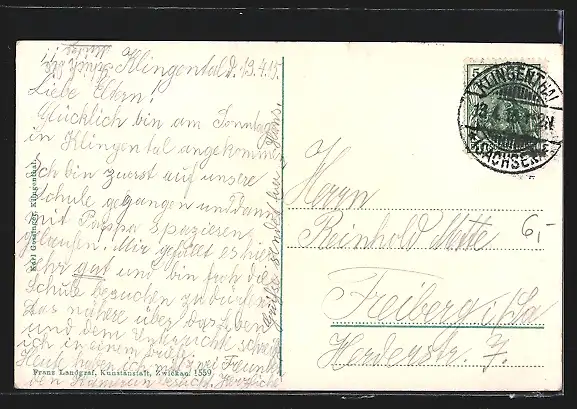 Klingental d. 13.4.15.
Liebe Eltern!
Glücklich bin am Sonntag
in Klingental angekommen.
Ich bin zuerst auf unsere
Schule gegangen und dann
mit Pappa spazieren
gelaufen. Mir gefällt es hier
sehr gut und bin froh die
Schule besuchen zu dürfen.
Das nähere über das Leben
und dem Unterricht schreibe
ich in einem
Heute habe ich mit zwei Freunden
den besucht. Herzliche
Grüße sendet euer Hans
Karl Goesinger, Klingenthal
Franz Landgraf, Kunstanstalt, Zwickau. 1559
KLINGENTHAL
(SACHSEN)
5
Herrn
Reinhold
Freiberg i/Sa
Herderstr. 7.
6,-